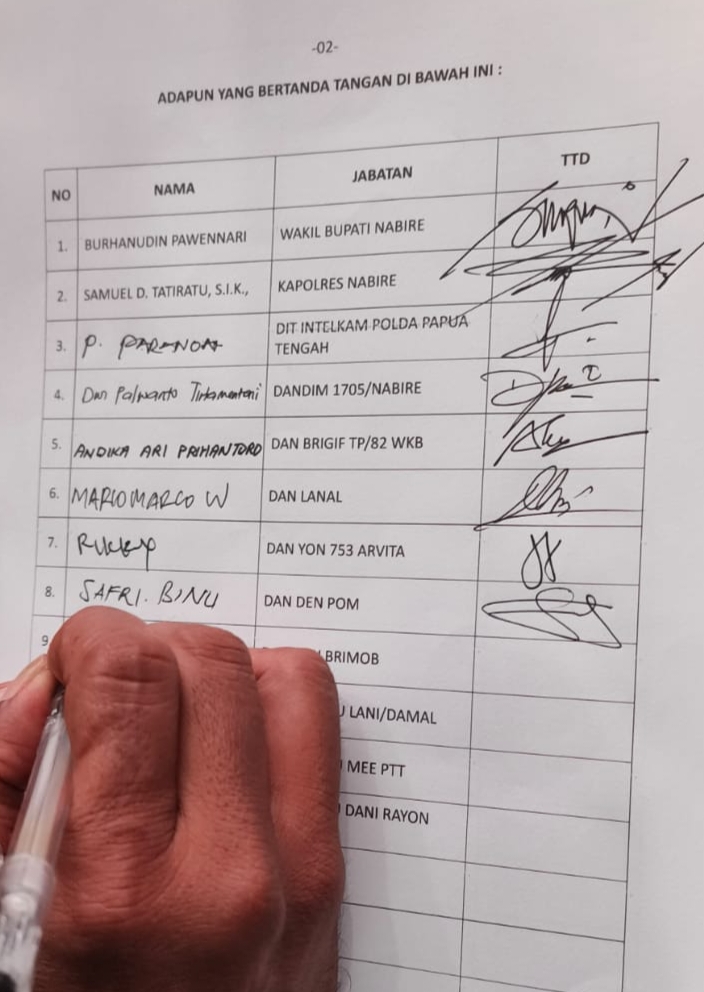 -02-
ADAPUN YANG BERTANDA TANGAN DI BAWAH INI :
NO NAMA JABATAN TTD
1. BURHANUDIN PAWENNARI WAKIL BUPATI NABIRE
2. SAMUEL D. TATIRATU, S.I.K., KAPOLRES NABIRE
3. P. DIT INTELKAM POLDA PAPUA
TENGAH
4. DANDIM 1705/NABIRE
5. ANDIKA ARI PRIHANTORO DAN BRIGIF TP/82 WKB
6. MARIO MARCO W DAN LANAL
7. DAN YON 753 ARVITA
8. SAFRI. BINU DAN DEN POM
9 BRIMOB
LANI/DAMAL
MEE PTT
DANI RAYON